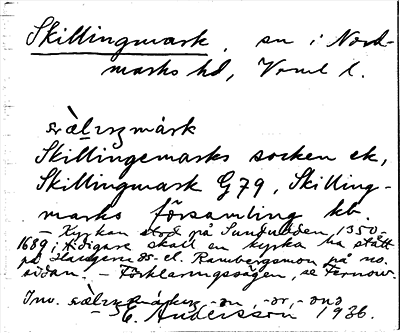 Skillingmark, sn i Nord-
marks hd, Vrml l.
Skillingemarks socken ek,
Skillingmark G79, Skilling-
marks församling kb.
— Kyrkan stod på Sundudden, 1350-
1689; tidigare skall en kyrka ha stått
på Haugene el. Rambergsmon på no.
sidan. — Förklaringssägen, se Fernow.
Inv. -on, -or, -ona
E. Andersson 1936.